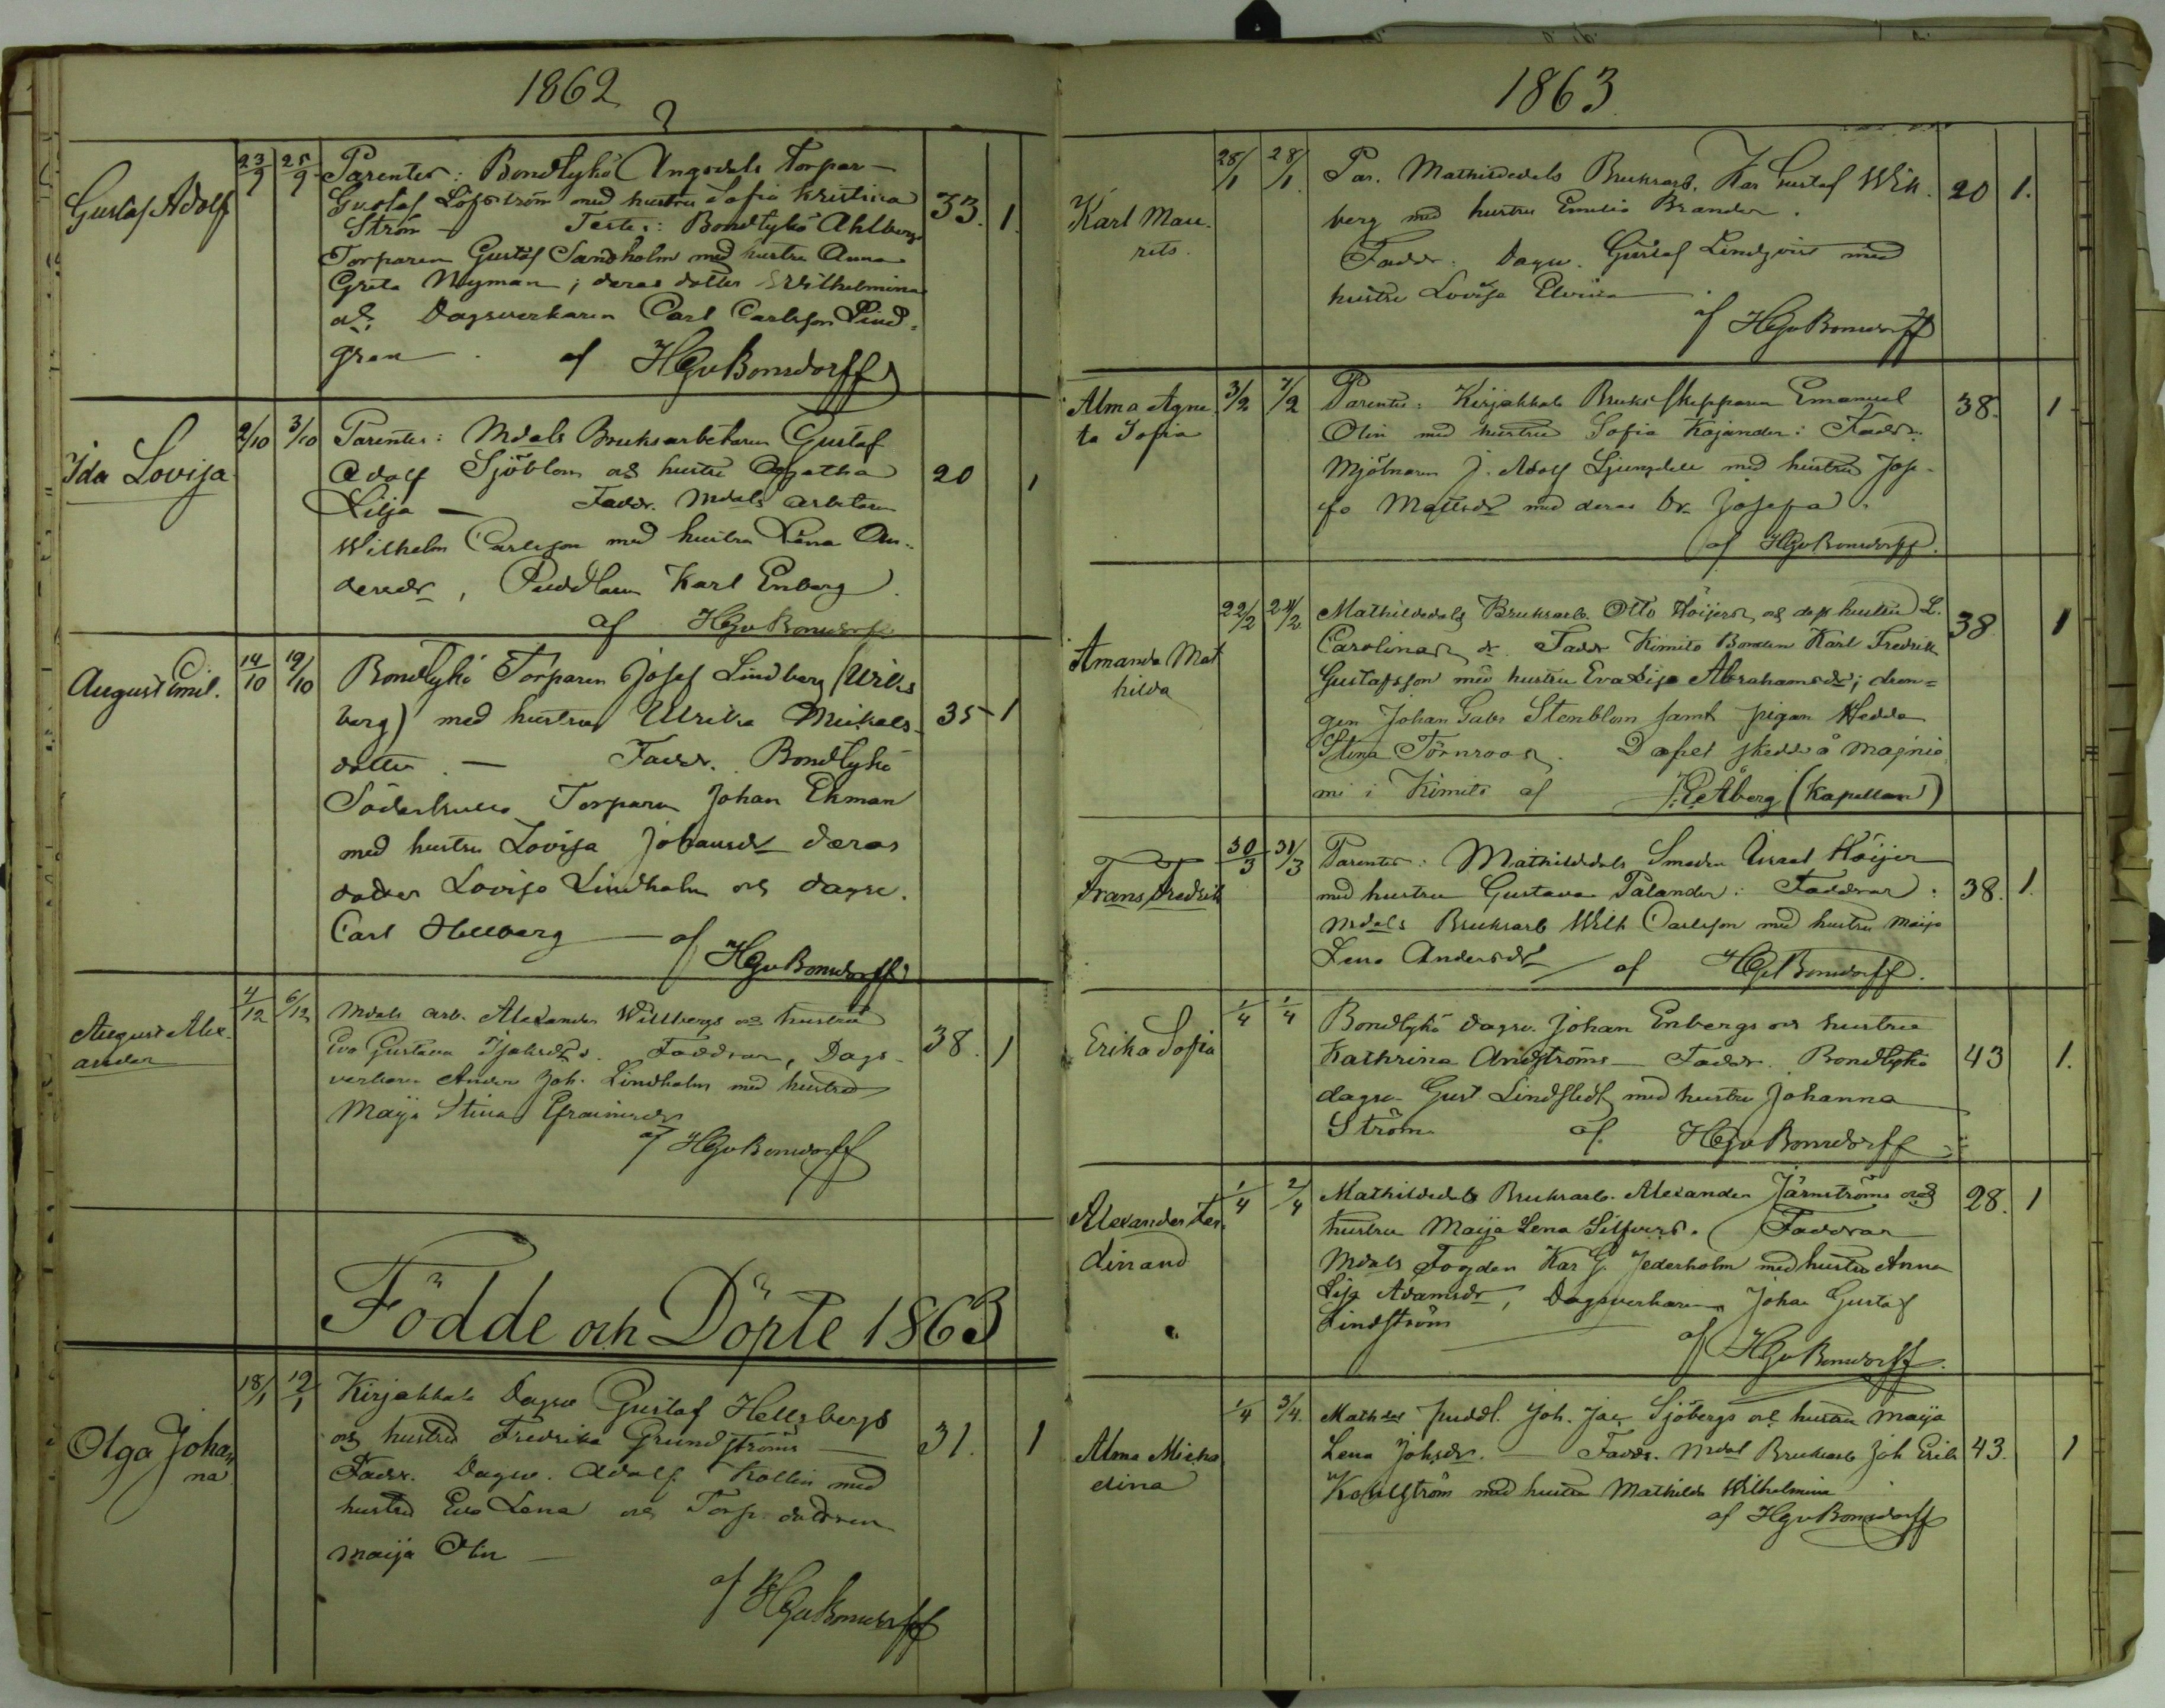 1862
Gustaf Adolf
23/9 25/9
Parenter: Bondtykö Ängsdals Torpar-
Gustaf Löfström med hustru Sofia Kristina
Ström — Testes: Bondtykö Ahlbergs
Torparen Gustaf Sandholm med hustru Anna
Greta Nyman; deras dotter Wilhelmina
och Dagsverkaren Carl Carlsson Lind-
gren. af HGvBonsdorff
33. 1.
Ida Lovisa
2/10 3/10
Parenter: Mdals Bruksarbetaren Gustaf
Adolf Sjöblom och hustru Agatha
Lilja — Faddr. Mdals arbetaren
Wilhelm Carlsson med hustru Lena An-
dersdr, Puddlaren Karl Enberg.
af HGvBonsdorff
20 1
August Emil.
14/10 19/10
Bondtykö Torparen Josef Lindberg (Wiks
berg) med hustru Ulrika Mickels-
dotter. — Faddr. Bondtykö
Söderkulla Torparen Johan Ekman
med hustru Lovisa Johansdr deras
dotter Lovisa Lindholm och dagsv.
Carl Hellberg — af HGvBonsdorff
35 1
August Alex
ander
4/12 6/12
Mdals arb. Alexander Willbergs och hustru
Eva Gustava Faddrar, Dags-
verkaren Anders Joh. Lindholm med hustru
Maija Stina Efraimsdr
af HGvBonsdorff
38. 1
Födde och Döpte 1863
Olga Johan
na
18/1 19/1
Kirjakkala Dagsv Gustaf Hellsbergs
och hustru Fredrika Grundströms —
Faddr. Dagsv. Adolf Kollin med
hustru Eva Lena och Torp. dottren
Maija Olin —
af HGvBonsdorff
31. 1
1863
Karl Mau-
rits.
28/1 28/1
Par. Mathildedals Bruksarb. Kar Gustaf Wik-
berg med hustru Emilia Brander.
Faddr. Dagsv. Gustaf Lindqvist med
hustru Lovisa Elvira —
af HGvBonsdorff
20 1.
Alma Agne
ta Sofia
3/2 7/2
Parenter: Kirjakkala Bruksskepparen Emanuel
Olin med hustru Sofia Kajander: Faddr.
Mjölnaren J. Adolf Ljungdell med hustru Jose-
fa Mattsdr med deras dr. Josefa.
af HGvBonsdorff.
38. 1
Amanda Mat
hilda
22/2 24/2
Mathildedals Bruksarb. Otto Höijers och dess hustru L.
Carolina Faddr Kimito Bonden Karl Fredrik
Gustafsson med hustru Eva Lisa Abrahamsdr; dren=
gen Johan Gabr Stenblom samt pigan Hedda
Stina Törnroos. Dopet skedde å Majnie
mi i Kimito af Åberg (Kapellan)
38 1
Frans Fredrik
30/3 31/3
Parenter: Mathildedals Smeden Israel Höijer
med hustru Gustava Palander: Faddrar:
Mdals Bruksarb Wilh Carlsson med hustru Maija
Lena Andersdr — af HGvBonsdorff.
38. 1.
Erika Sofia
1/4 1/4
Bondtykö dagsv. Johan Enbergs och hustru
Kathrina Andströms — Faddr. Bondtykö
dagsv. Gust Lindstedt med hustru Johanna
Ström. af. HGvBonsdorff
43 1.
Alexander Fer
dinand
1/4 2/4
Mathildedals Bruksarb. Alexander Järnströms och
hustru Maija Lena Silfvers. Faddrar
Mdals Fogden Kar G. Jederholm med hustru Anna
Lisa Adamsdr, Dagsverkaren Johan Gustaf
Lindström
af HGvBonsdorff.
28. 1
Alma Micha
elina
1/4 3/4.
Puddl. Joh. Jac Sjöbergs och hustru Maija
Lena Johsdr. — Faddr. Mdal Bruksarb Joh Erik
Kohlström med hustru Mathilda Wilhelmina
af HGvBonsdorff
43. 1